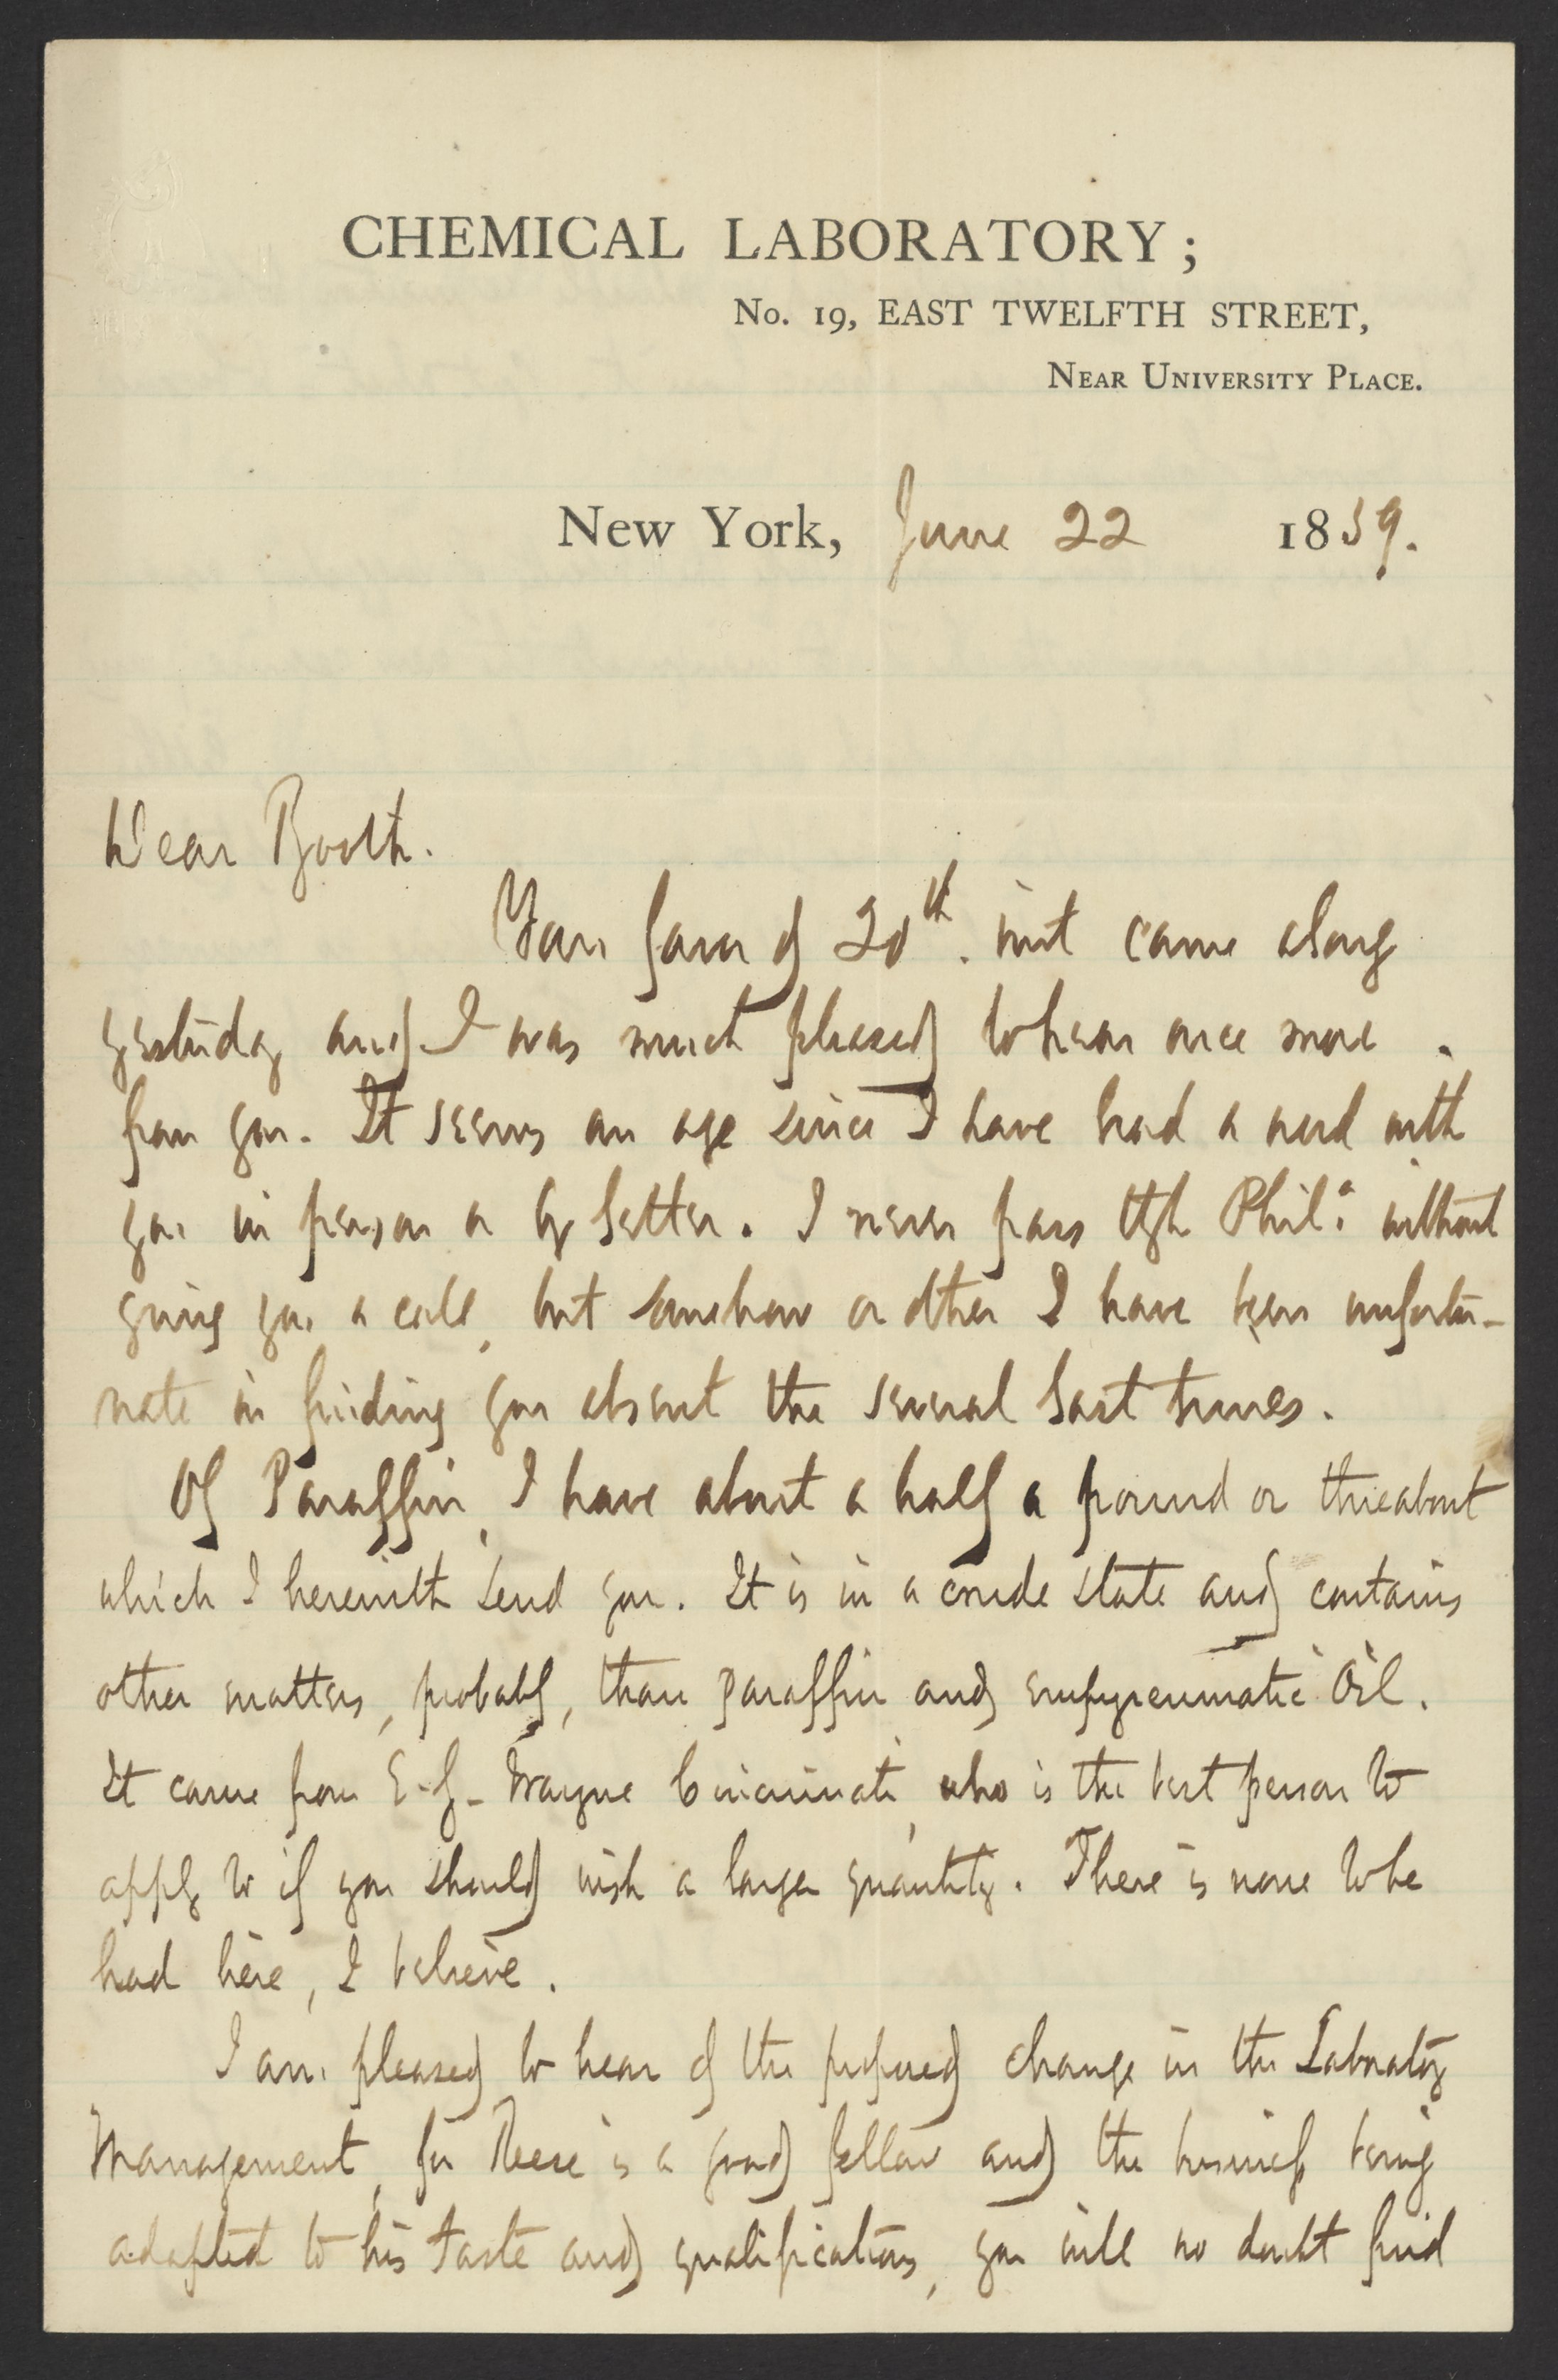 CHEMICAL LABORATORY;
No. 19, EAST TWELFTH STREET,
NEAR UNIVERSITY PLACE.
New York, June 22 1859.
Dear Booth.
Your favor of 20th. inst came along
yesterday and I was much pleased to hear once more
from you. It seems an age since I have had a word with
you in person or by letter. I never pass thgh Phila. without
giving you a call, but somehow or other I have been unfortu-
nate in finding you absent the several last times.
Of Paraffin, I have about a half a pound or thereabout
which I herewith send you. It is in a crude state and contains
other matters, probably, than paraffin and empyreumatic Oil.
It came from E. S. Wayne Cincinnati, who is the best person to
apply to if you should wish a larger quantity. There is none to be
had here, I believe.
I am pleased to hear of the proposed change in the Laboratory
Management, for Reese is a good fellow and the business being
adapted to his taste and qualifications, you will no doubt find